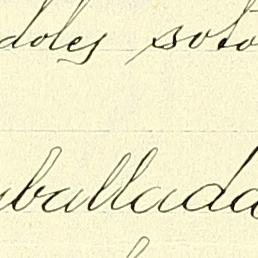 doles soto
uballada